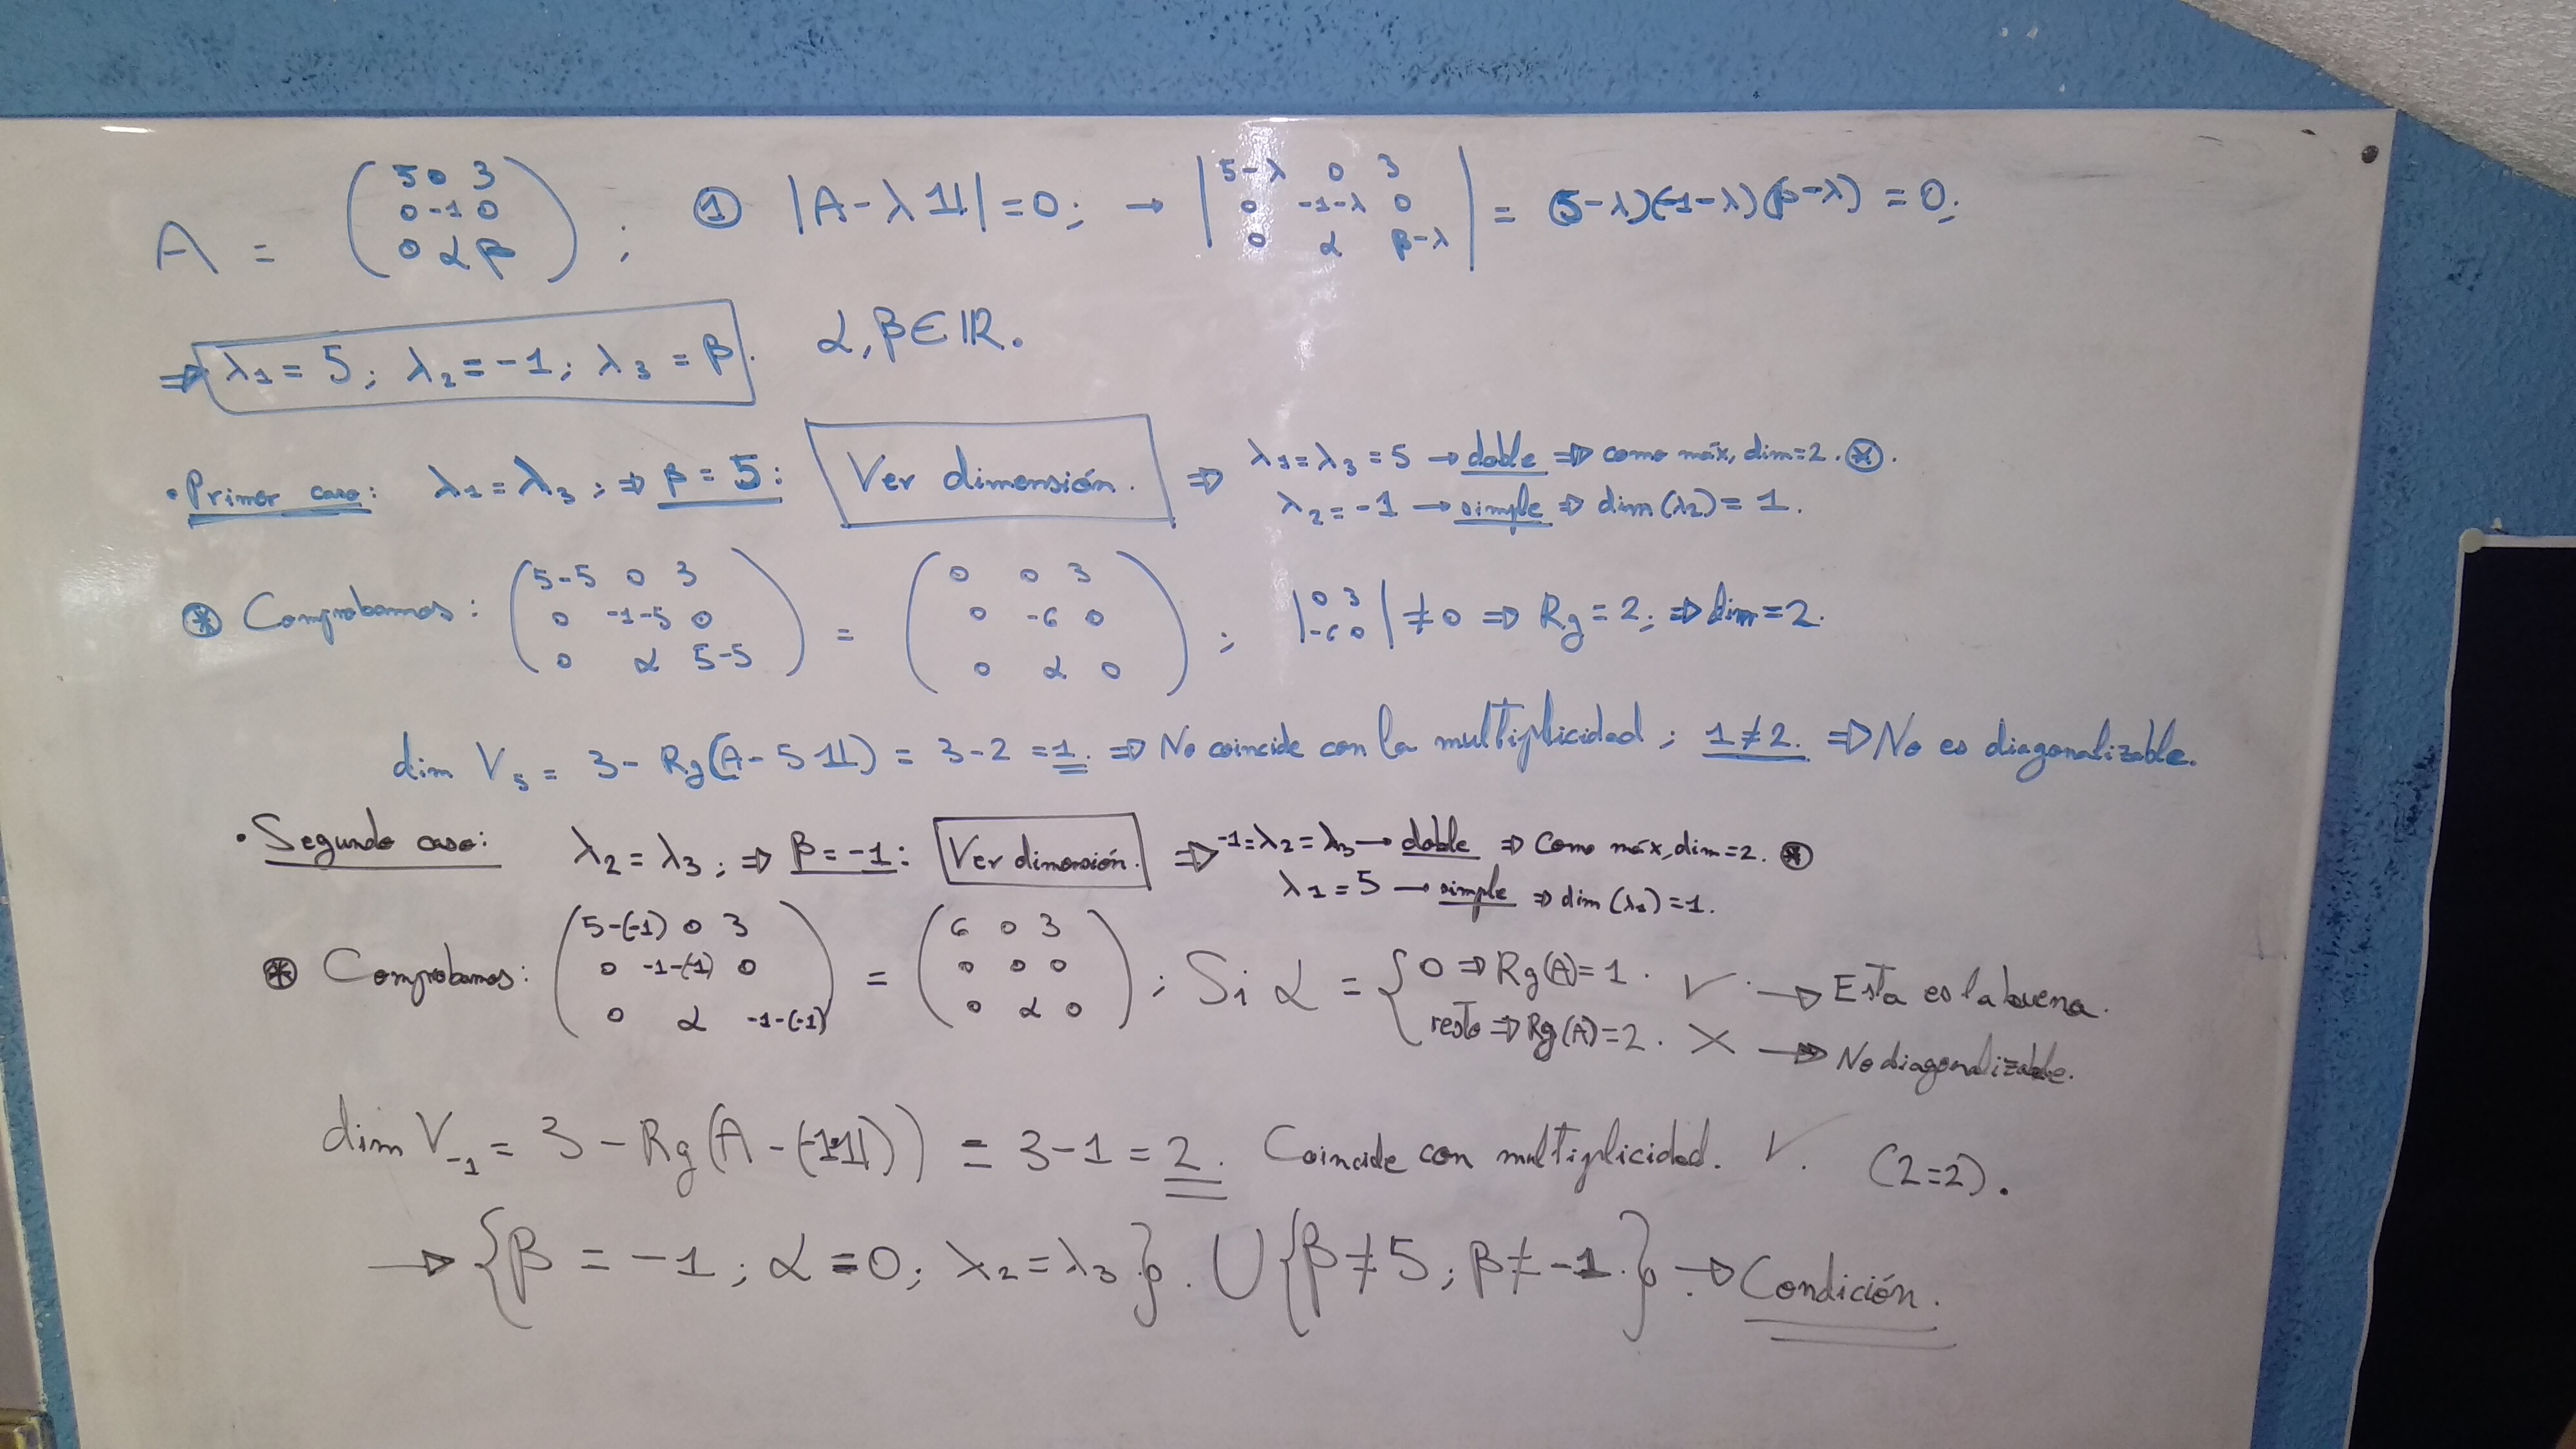 A = ( 5 0 3 / 0 -1 0 / 0 α β ) ; ① |A - λ𝟙| = 0; → | 5-λ 0 3 / 0 -1-λ 0 / 0 α β-λ | = (5-λ)(-1-λ)(β-λ) = 0;
⇒ λ₁ = 5; λ₂ = -1; λ₃ = β. α, β ∈ ℝ.
• Primer caso: λ₁ = λ₃; ⇒ β = 5: Ver dimensión. ⇒ λ₁ = λ₃ = 5 → doble ⇒ como máx, dim = 2. ⊛.
λ₂ = -1 → simple ⇒ dim (λ₂) = 1.
⊛ Comprobamos: ( 5-5 0 3 / 0 -1-5 0 / 0 α 5-5 ) = ( 0 0 3 / 0 -6 0 / 0 α 0 ) ; | 0 3 / -6 0 | ≠ 0 ⇒ Rg = 2; ⇒ dim = 2.
dim V₅ = 3 - Rg(A - 5𝟙) = 3 - 2 = 1. ⇒ No coincide con la multiplicidad; 1 ≠ 2. ⇒ No es diagonalizable.
• Segundo caso: λ₂ = λ₃; ⇒ β = -1: Ver dimensión. ⇒ -1 = λ₂ = λ₃ → doble ⇒ Como máx, dim = 2. ⊛
λ₁ = 5 → simple ⇒ dim (λ₁) = 1.
⊛ Comprobamos: ( 5-(-1) 0 3 / 0 -1-(-1) 0 / 0 α -1-(-1) ) = ( 6 0 3 / 0 0 0 / 0 α 0 ) ; Si α = { 0 ⇒ Rg(A) = 1. ✓. → Esta es la buena.
resto ⇒ Rg(A) = 2. ✗ → No diagonalizable.
dim V₋₁ = 3 - Rg(A - (-1·𝟙)) = 3 - 1 = 2. Coincide con multiplicidad. ✓. (2=2).
→ {β = -1; α = 0; λ₂ = λ₃}. ∪ {β ≠ 5; β ≠ -1.}. → Condición.